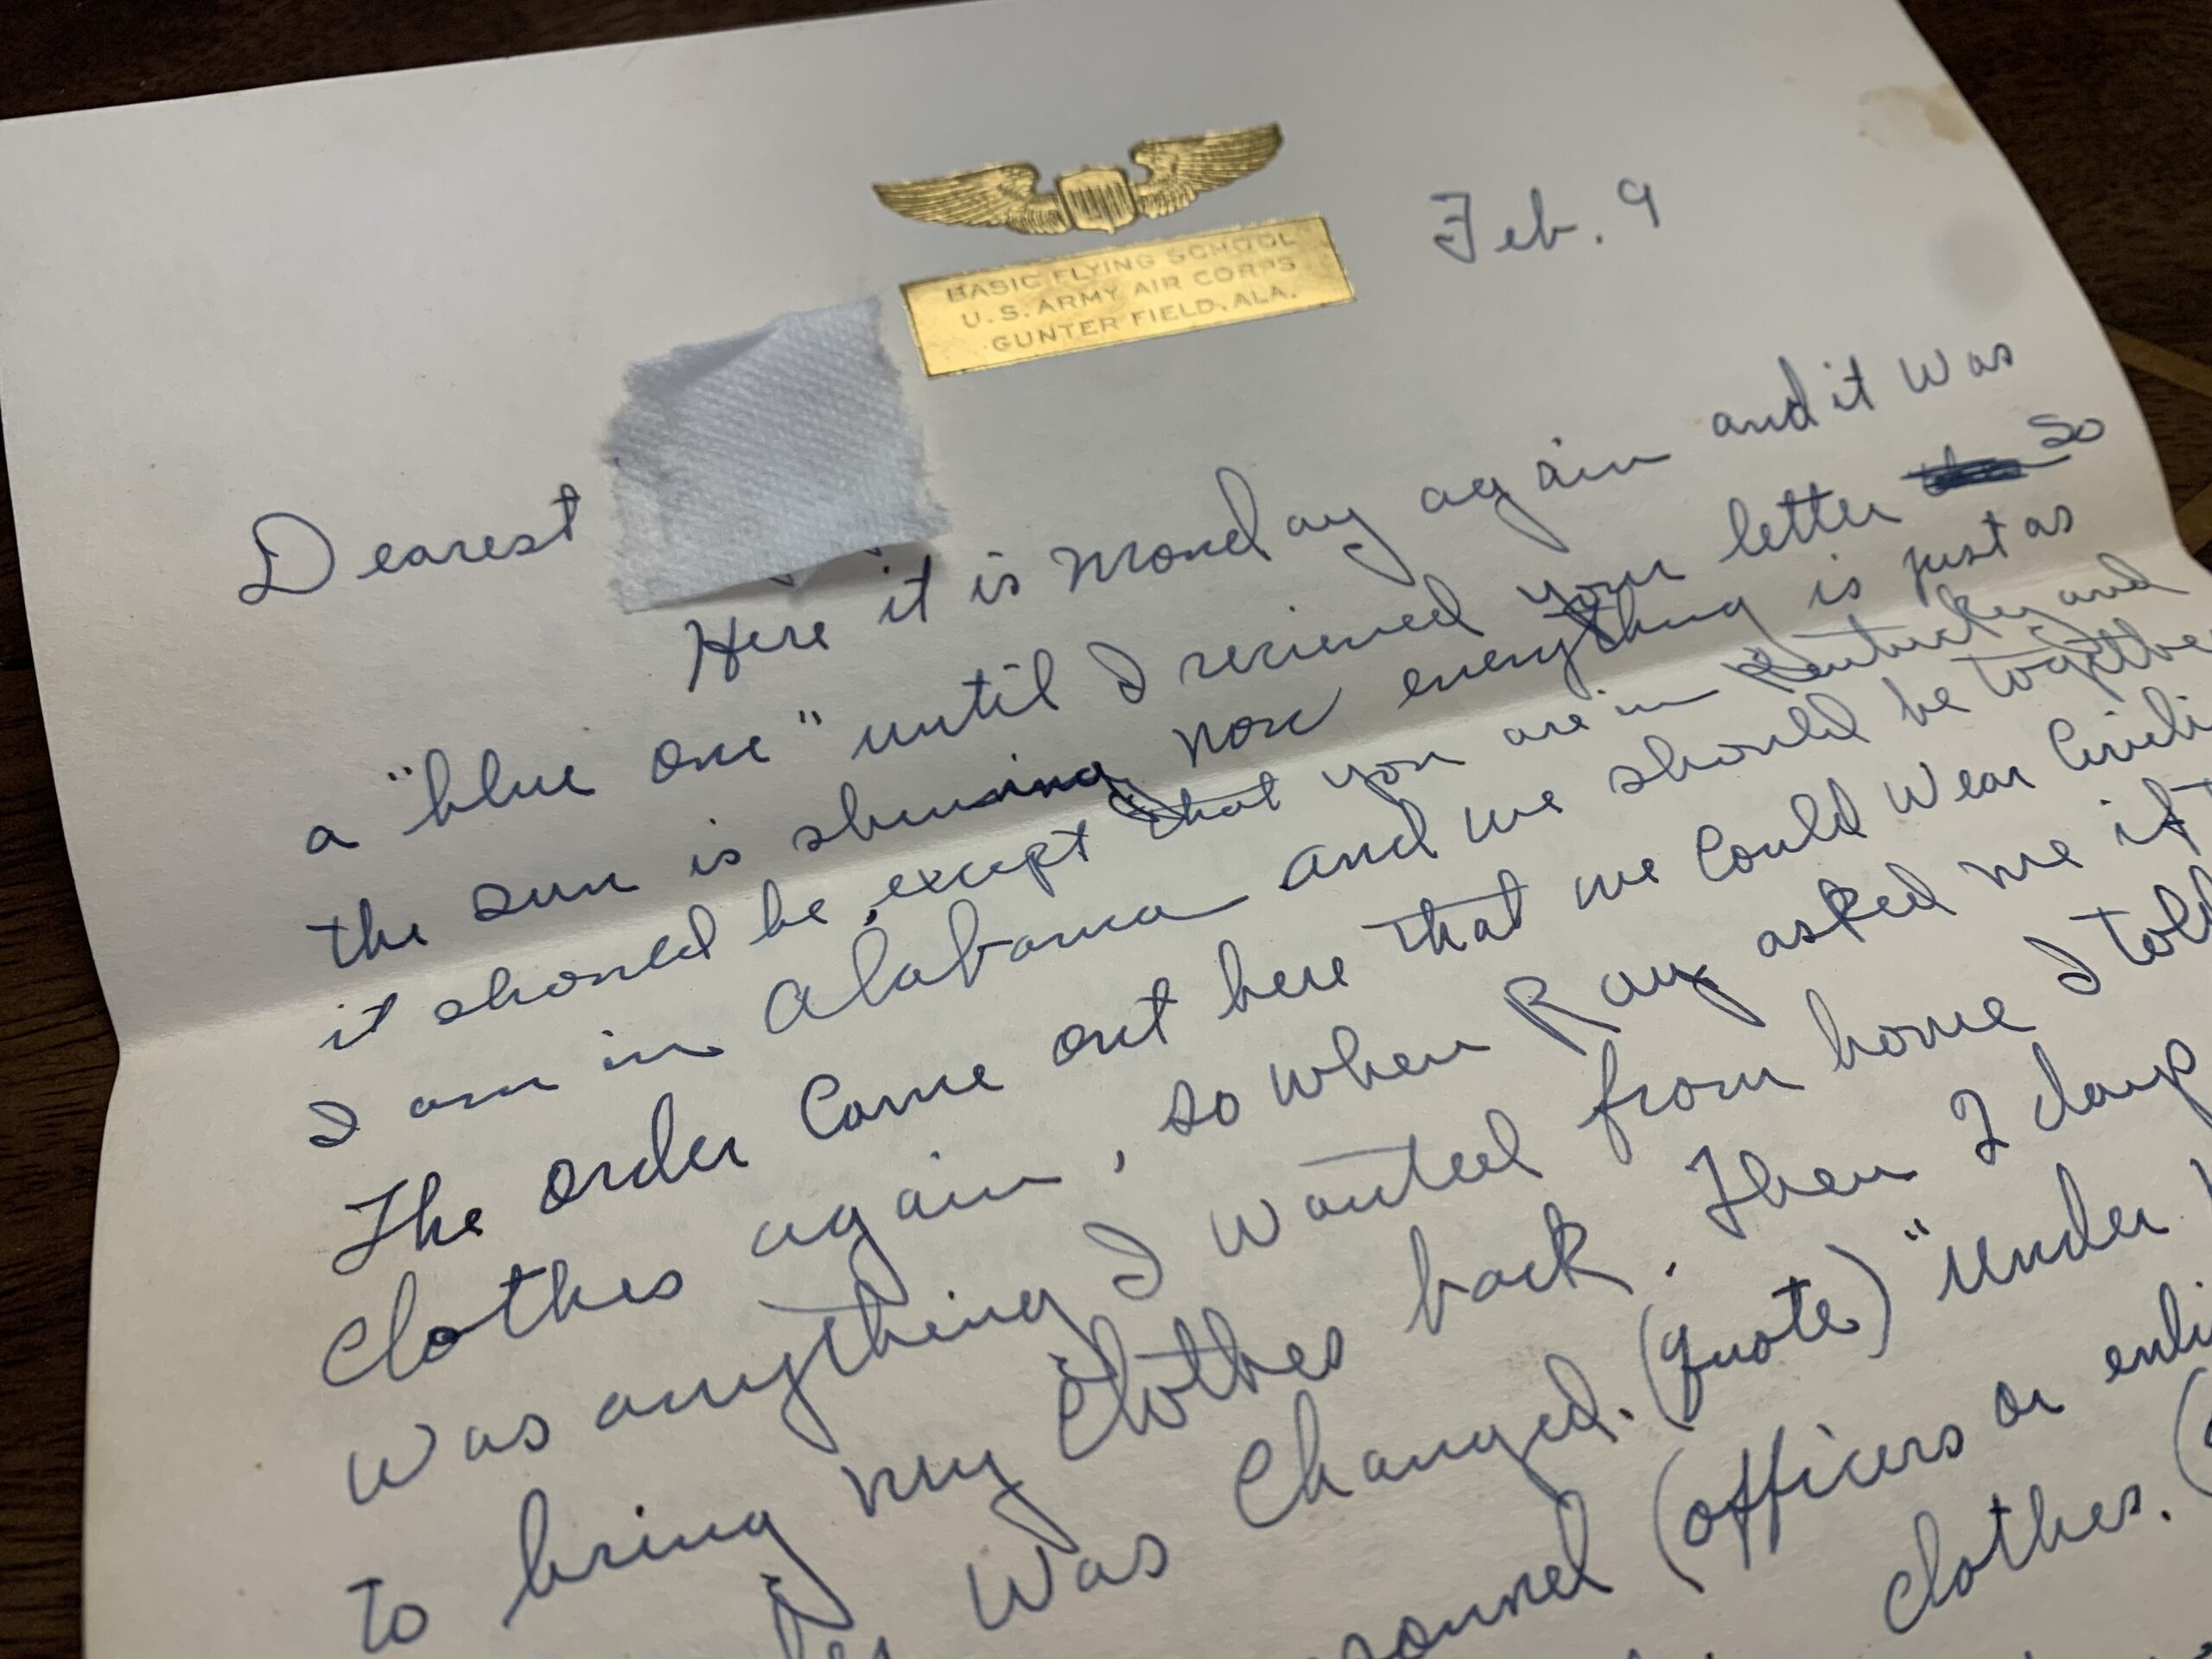 BASIC FLYING SCHOOL
U.S. ARMY AIR CORPS
GUNTER FIELD, ALA.
Feb. 9
Dearest
Here it is Monday again and it was
a "blue one" until I recieved your letter so
the sun is shining now everything is just as
it should be, except that you are in Kentucky and
I am in Alabama and we should be together
The order Came out here that we Could wear Civili
Clothes again, so when Ray asked me if t
was anything I wanted from home I told
to bring my Clothes back. Then 2 days
was Changed. (quote) "Under
(officers or enli
clothes. (